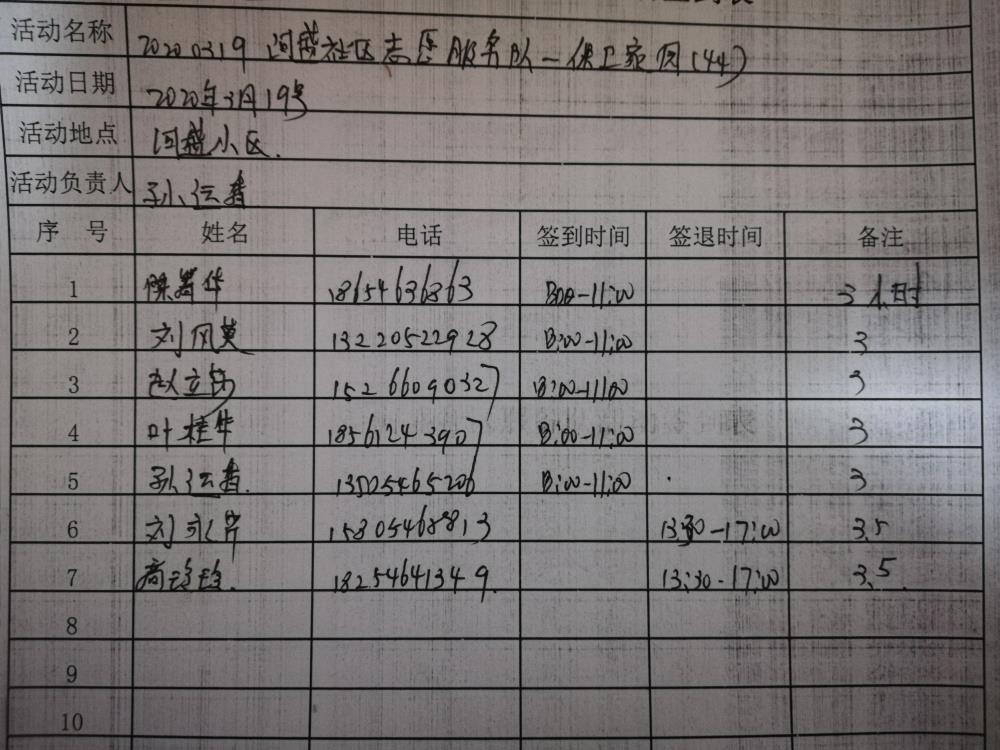 活动名称 20200319 河盛社区志愿服务队—保卫家园(44)
活动日期 2020年3月19号
活动地点 河盛小区.
活动负责人 孙运香
序 号 姓名 电话 签到时间 签退时间 备注
1 华 18654636863 8:00-11:00 3小时
2 刘风英 13220522928 8:00-11:00 3
3 赵立 15266090327 8:00-11:00 3
4 叶桂华 18561243907 8:00-11:00 3
5 孙运香. 13505465206 8:00-11:00 3
6 刘永芹 15805468813 13:30-17:00 3.5
7 18254641349. 13:30-17:00 3.5
8
9
10